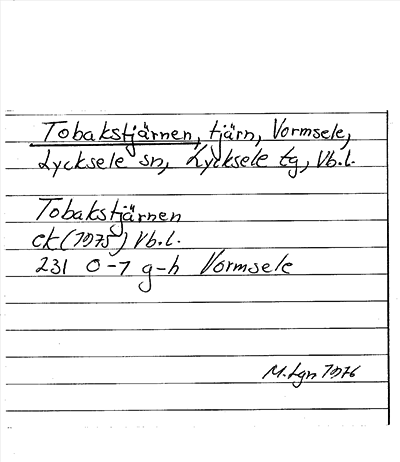 Tobakstjärnen, tjärn, Vormsele,
Lycksele sn, Lycksele tg, Vb.l.
Tobakstjärnen
ek (1975) Vb.l.
231 0-7 g-h Vormsele
M. Lgn 1976